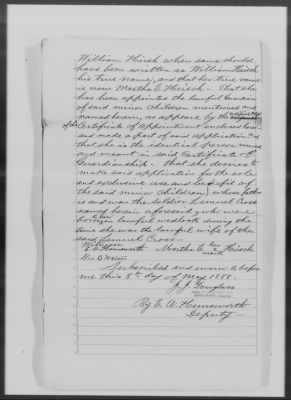 William Hirsh when same should
have been written as William Heisch
his true name, and that her true name
is now Martha E. Heisch - That she
has been appointed the lawful Guardian
of said minor children mentioned and
named herein, as appears by the certified copy
of the Certificate of appointment enclosed herein
and made a part of said application, and
that she is the identical person named
and meant in said Certificate of
Guardianship - That she desires to
make said application for the sole
and exclusive use and benefit of
the said minor children, whose father
is and was the soldier Lemuel Cross
named herein aforesaid, who were
born in lawful wedlock during the
time she was the lawful wife of the
said Lemuel Cross -
Witnesses
E. A. Hemsworth Martha E. her x mark Heisch
Geo.
Subscribed and sworn to before
me this 8th day of May 1888.
J. J. Douglass
By E. A. Hemsworth
Deputy -